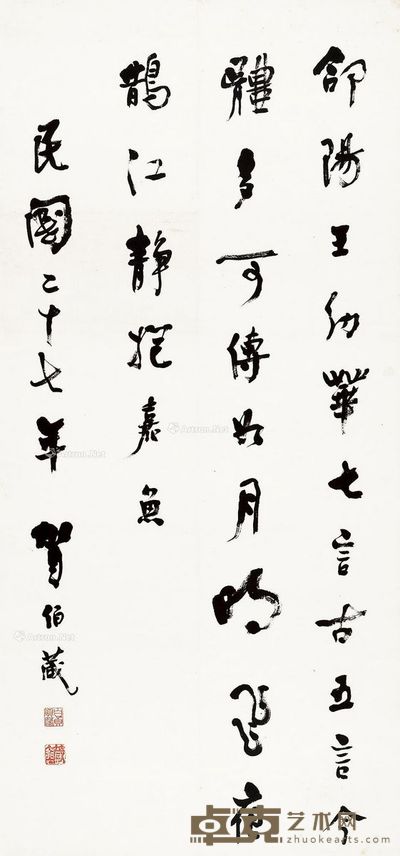 郃陽王幼華七言古五言今
體多可傳如月明飛夜
鵲江靜抱嘉魚
民國二十七年 賀伯箴
Artron.Net
卓克艺术网
zhuokearts.com